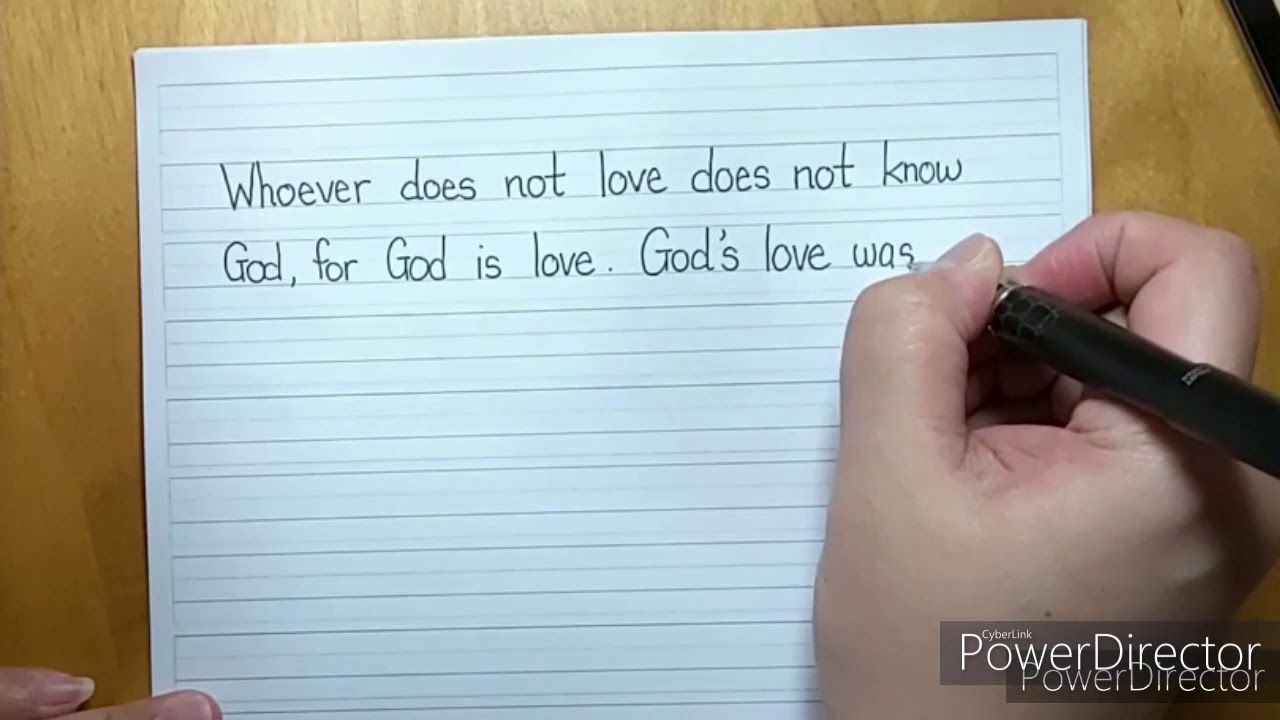 Whoever does not love does not know
God, for God is love. God's love was
CyberLink
PowerDirector
PowerDirector